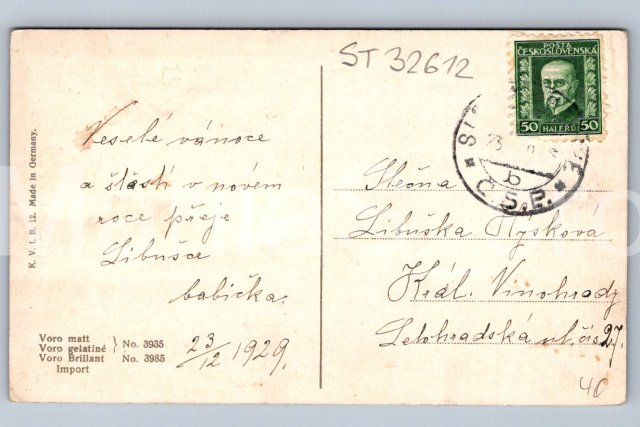 ST 32612
POSTA
ČESKOSLOVENSKÁ
50 HALÉŘŮ 50
23
b
* Č.S.P. *
K. V. i. B. 12. Made in Germany.
Veselé vánoce
a štěstí v novém
roce přeje
Libušce
babička.
23/12 1929.
Voro matt
Voro gelatiné } No. 3935
Voro Brillant } No. 3985
Import
Slečna
Libuška
Král. Vinohrady
Letohradská ul. čís 27.
40